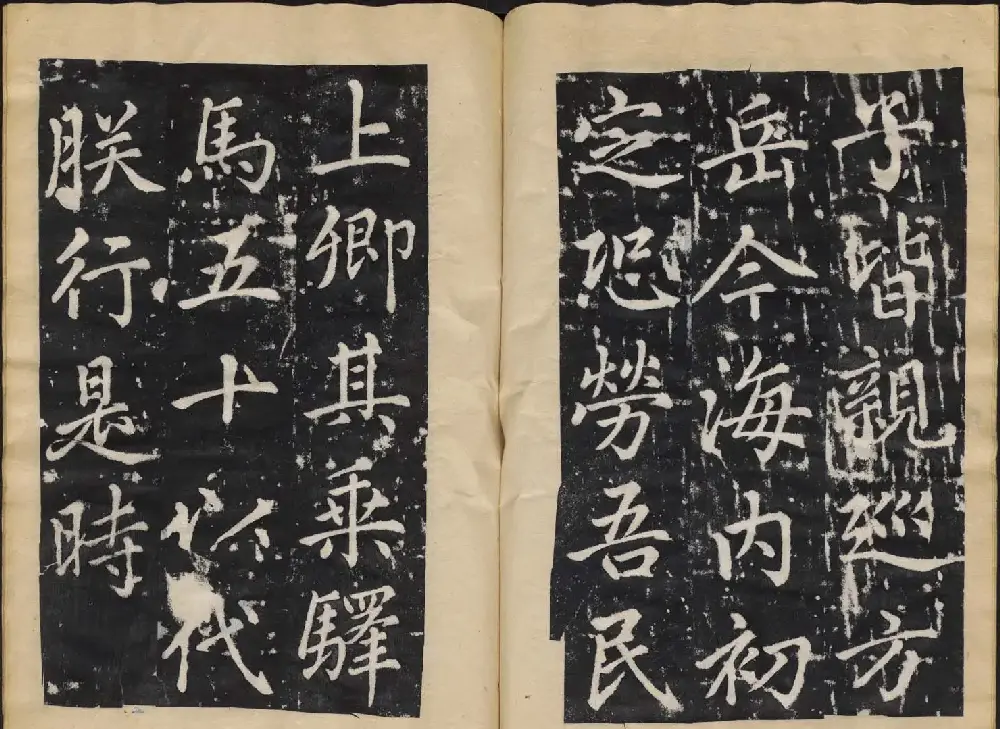 子皆親巡方
岳今海内初
定恐勞吾民
上卿其乘驛
馬五十代
朕行是時